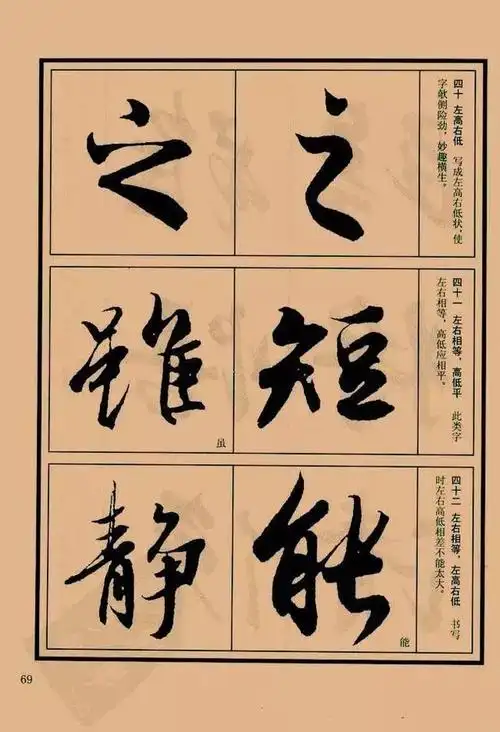 四十 左高右低 写成左高右低状,使
字欹侧险劲,妙趣横生。
之
之
四十一 左右相等,高低平 此类字
左右相等,高低应相平。
短
雖
虽
四十二 左右相等,左高右低 书写
时左右高低相差不能太大。
能
能
静
69